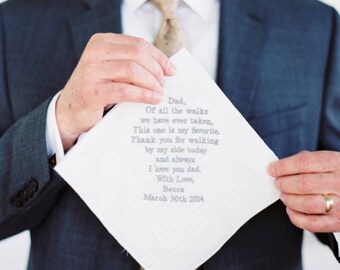 Dad,
Of all the walks
we have ever taken,
This one is my favorite.
Thank you for walking
by my side today
and always
I love you dad.
With Love,
Becca
March 30th 2014